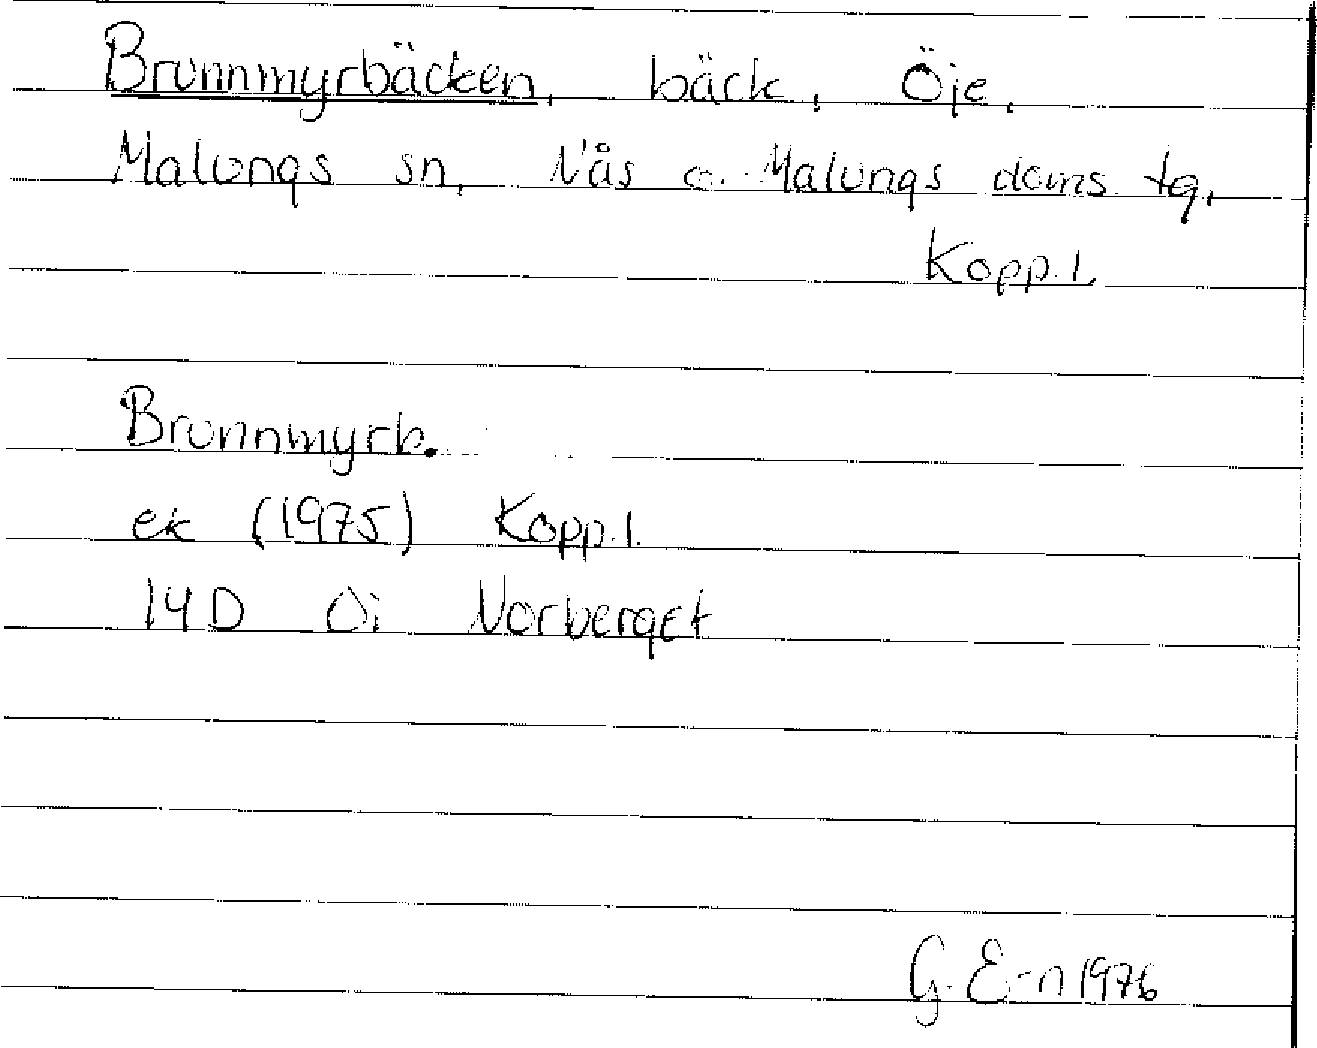 Brunnmyrbäcken, bäck, Öje,
Malungs sn, Nås o. Malungs doms. tg,
Kopp. l.
Brunnmyrb.
ek (1975) Kopp. l.
14D 0i Norberget
G. E-n 1976